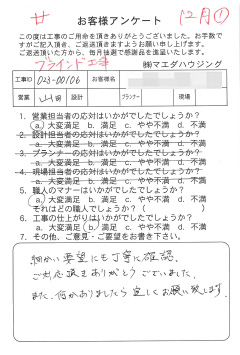 サ
12月①
お客様アンケート
この度は工事のご用命を頂きありがとうございました。お手数で
すがご記入頂き、ご返送頂きますようお願い申し上げます。
ご返送頂いた方から、毎月抽選で感謝品を進呈いたします。
ブラインド工事
㈱マエダハウジング
工事ID 023-00106 お客様名
営業 山田 設計 プランナー 現場
1. 営業担当者の応対はいかがでしたでしょうか?
a. 大変満足 b. 満足 c. やや不満 d. 不満
2. 設計担当者の応対はいかがでしたでしょうか?
a. 大変満足 b. 満足 c. やや不満 d. 不満
3. プランナーの応対はいかがでしたでしょうか?
a. 大変満足 b. 満足 c. やや不満 d. 不満
4. 現場担当者の応対はいかがでしたでしょうか?
a. 大変満足 b. 満足 c. やや不満 d. 不満
5. 職人のマナーはいかがでしたでしょうか?
a. 大変満足 b. 満足 c. やや不満 d. 不満
それはどの職人でしょうか?(
6. 工事の仕上がりはいかがでしたでしょうか?
a. 大変満足 b. 満足 c. やや不満 d. 不満
7. その他、ご意見・ご要望をお書き下さい。
細かい要望にも丁寧に確認、
ご対応頂きありがとうございました。
また、何かありましたら宜しくお願い致します。